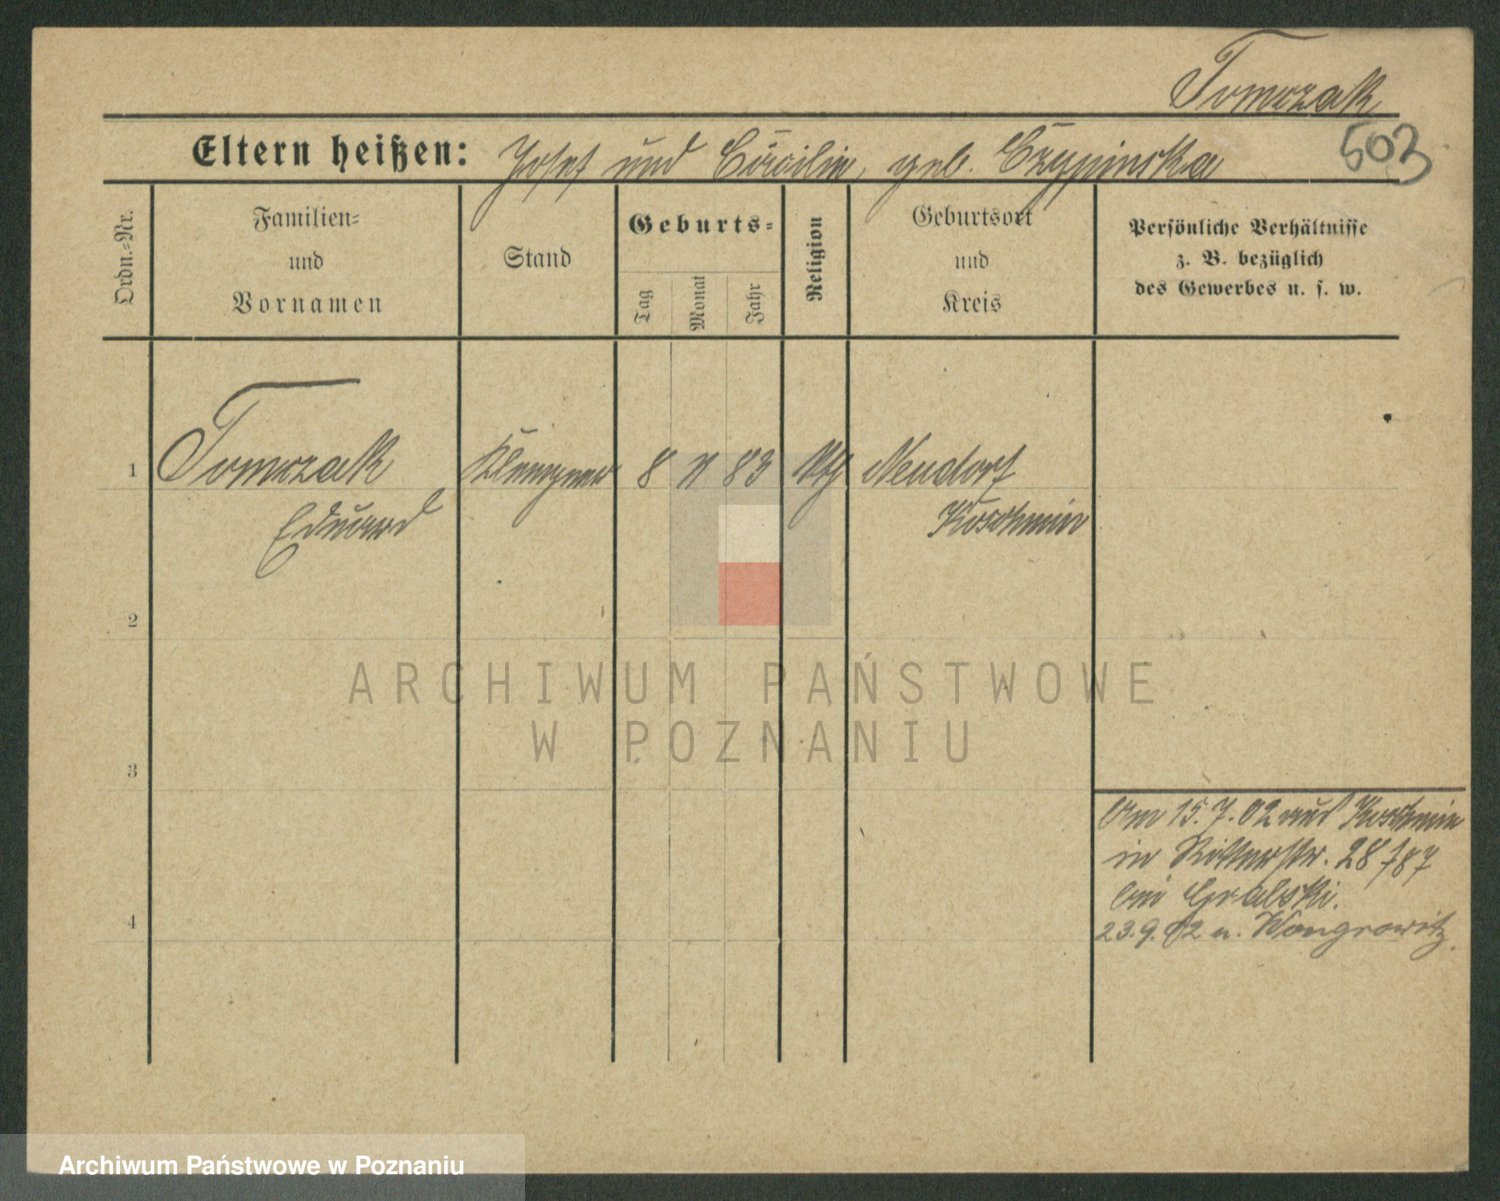 Tomczak
503
Eltern heißen: Josef und Cäcilie, geb. Czypinska
Ordn.=Nr.
Familien=
und
Vornamen
Stand
Geburts=
Tag
Monat
Jahr
Religion
Geburtsort
und
Kreis
Persönliche Verhältnisse
z. B. bezüglich
des Gewerbes u. s. w.
1
Tomczak
Eduard
Klempner
8
83
kth
Neudorf
Koschmin
2
3
4
Am 15.7.02 aus Koschmin
in Ritterstr. 28
bei Gralski.
23.9.02 n. Wongrowitz.
ARCHIWUM PAŃSTWOWE
W POZNANIU
Archiwum Państwowe w Poznaniu